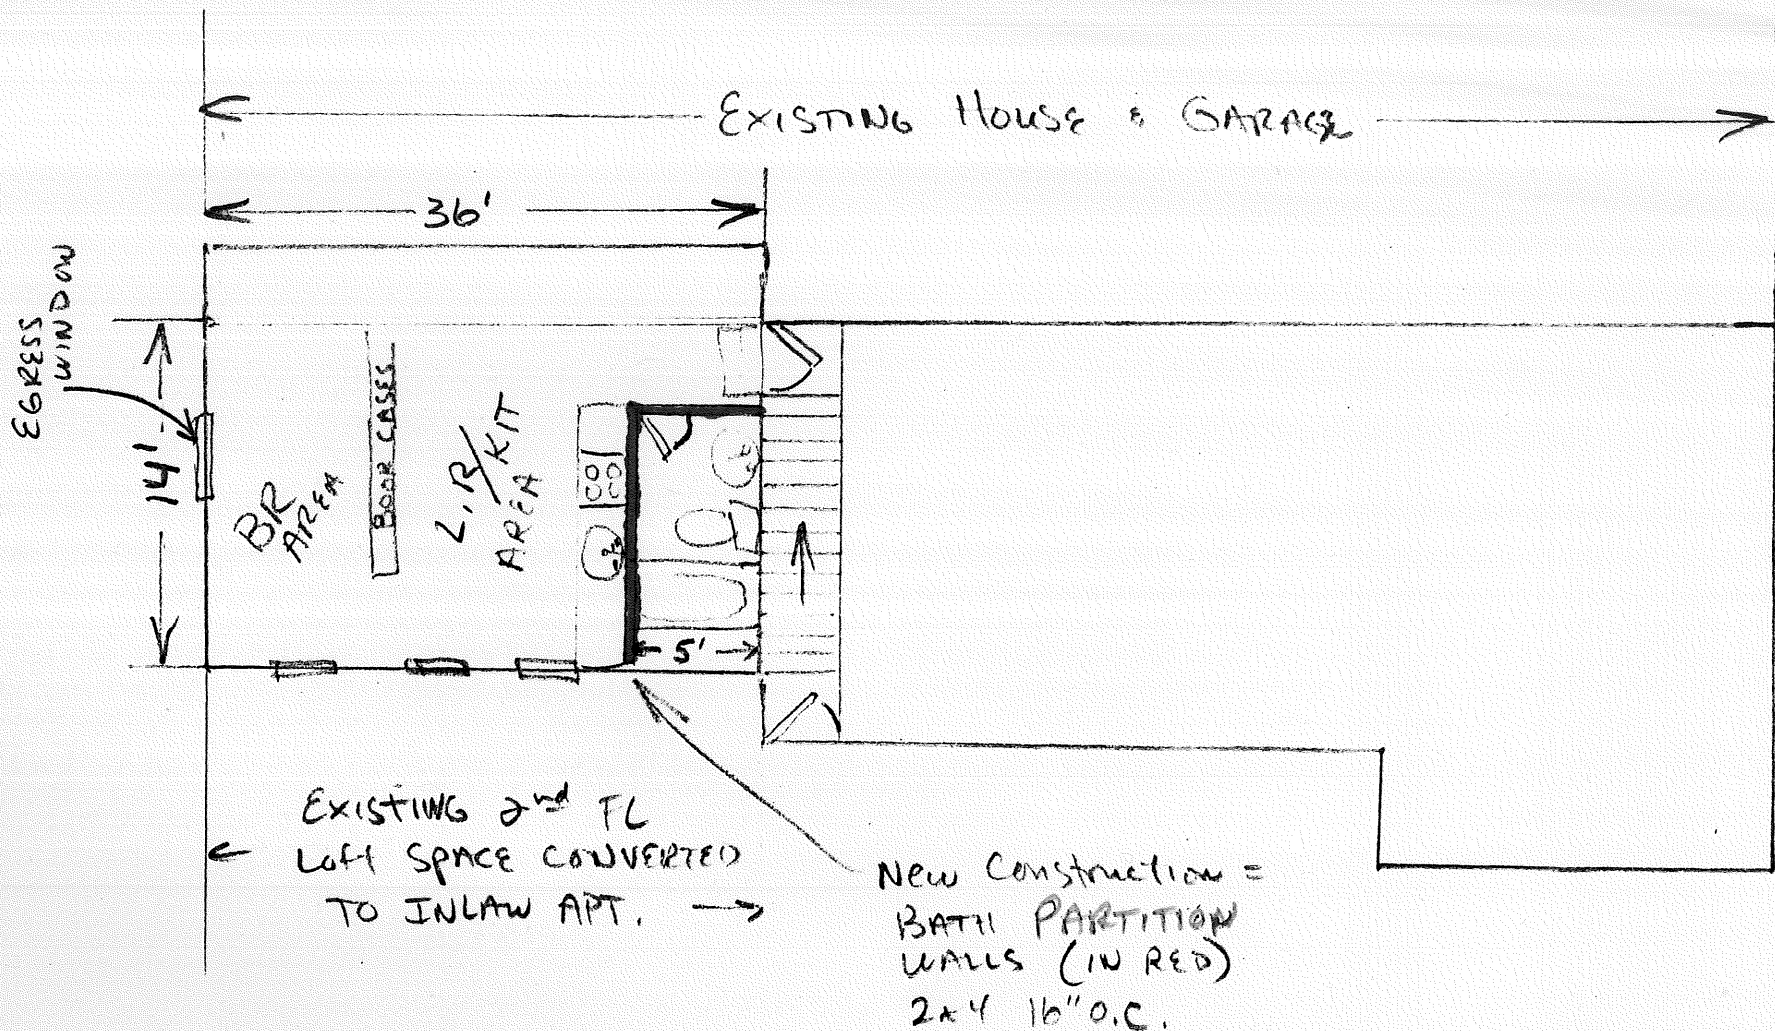 EXISTING HOUSE & GARAGE
36'
EGRESS
WINDOW
14'
BR
AREA
BOOK CASES
L.R/KIT
AREA
5'
EXISTING 2nd FL
LOFT SPACE CONVERTED
TO INLAW APT.
New Construction =
BATH PARTITION
WALLS (IN RED)
2x4 16" O.C.